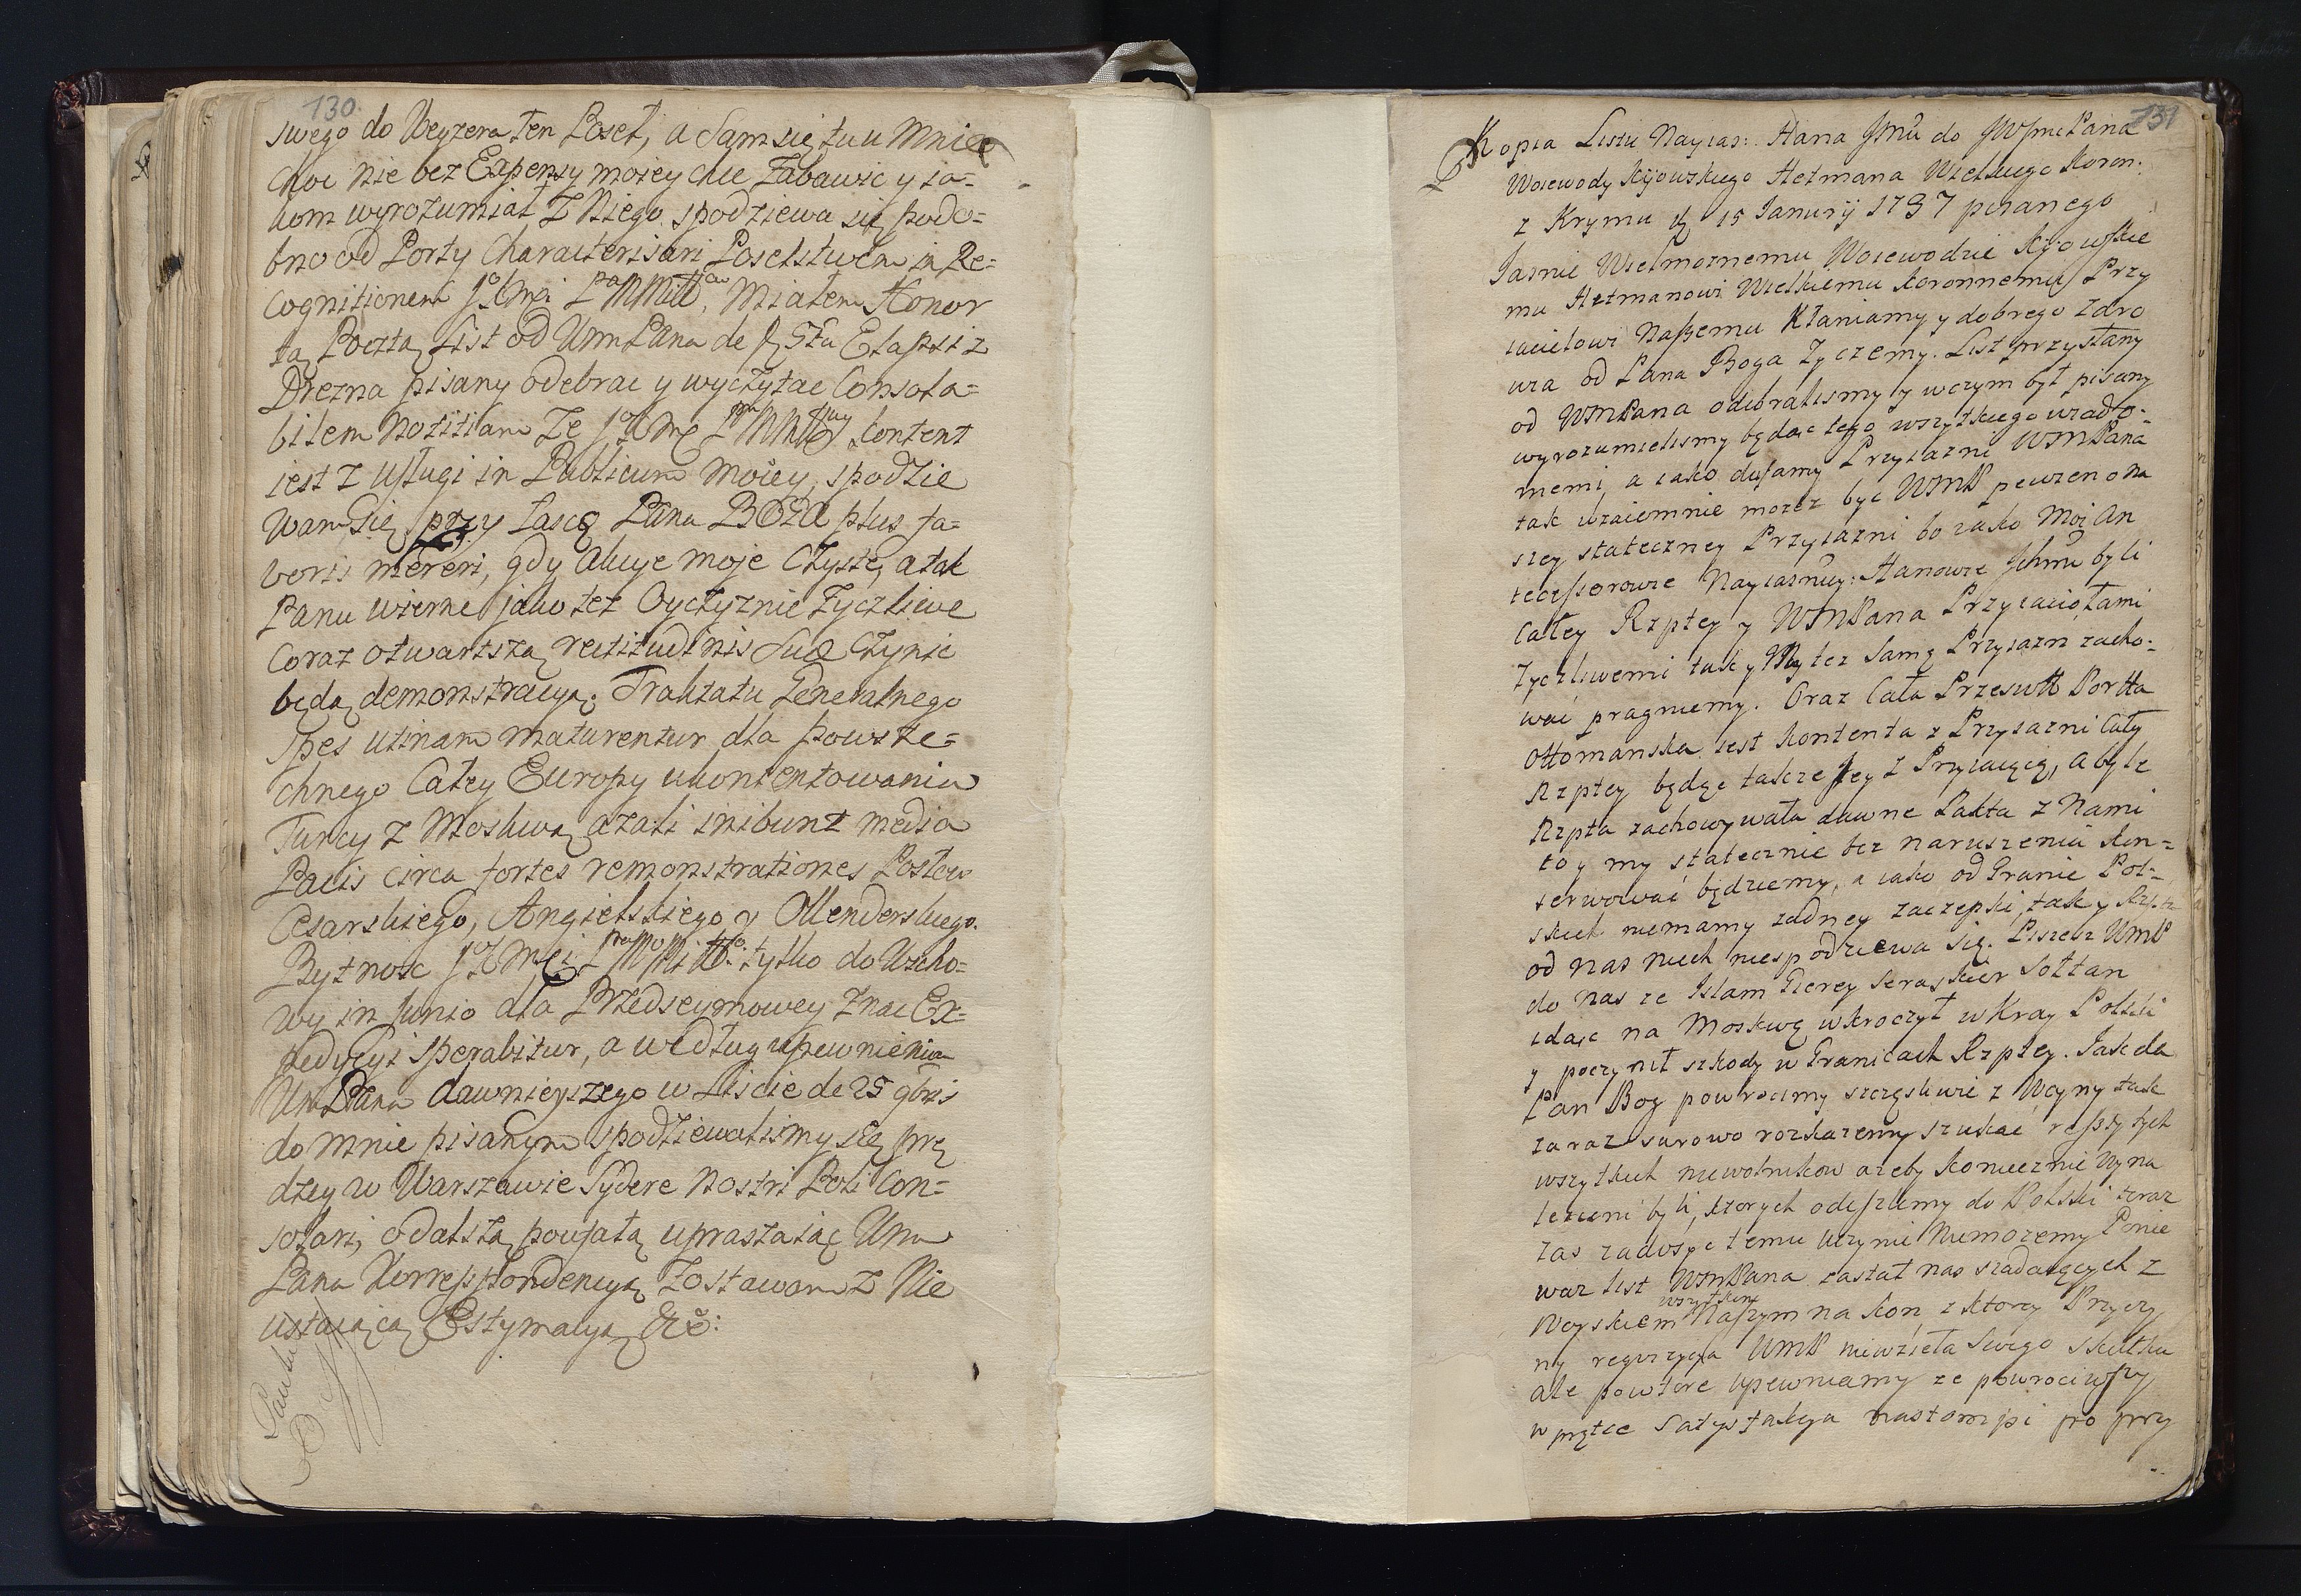 130.
swego do Weyzera ten Poseł, a Sam się tu u Mnie
choc nie bez Expensy moiey chce Zabawic y ia=
kom wyrozumiał Z Niego spodziewa się podo=
bno od Porty Characterisari Poselstwem in Re=
cognitionem JKMci PNMiło. Miałem Honor
tą Pocztą List od UmPana de
Drezna pisany odebrac y wyczytac Consola=
bilem Notitiam Ze JKMć kontent
iest z usługi in Publicum Moiey, spodzie
wam się przy łasce Pana BOZA plus fa=
voris mereri, gdy akcye moje Czyste, a tak
Panu wierne jako tez Oyczyznie Zyczliwe
Coraz otwartszą rectitudinis Suæ Czynic
będą demonstracyą. Traktatu Generalnego
spes utinam maturentur dla powsze=
chnego Całey Europy ukontentowania
Turcy z Moskwą azali inibunt media
Pacis circa fortes remonstrationes Posłow
Cesarskiego, Angielskiego y Ollenderskiego.
Bytnosc JKMci tylko do Wscho=
wy in Junio dla Przedseymowey Znac Ex=
pedycyi Sperabitur, a według upewnienia
UmPana dawnieyszego w Liscie de 25 9bris
do mnie pisanym spodziewalismy się prę
dzey w Warszawie Sydere Nostri Poli Con=
solari, o dalszą poufałą upraszaiąc Um
Pana Korrespondencyą Zostawam z Nie
ustaiącą Estymacyą &c:
131
Kopia Listu Nayias: Hana Jmci do JWJmć Pana
Woiewody Kijowskiego Hetmana Wielkiego Koron:
z Krymu d. 15 Januarij 1737 pisanego
Jasnie Wielmoznemu Woiewodzie Kijowskie
mu Hetmanowi Wielkiemu Koronnemu Przy
iacielowi Naszemu Kłaniamy y dobrego zdro
wia od Pana Boga Zyczemy. List przysłany
od WMPana odebralismy y wczym był pisany
wyrozumielismy będąc tego wszytkiego wiado=
memi, a iako dufamy Przyiazni WMPana
tak wzaiemnie mozez byc WMP pewien na
szey stateczney Przyiazni bo iako Moi An
tecessorowie Nayiasnieysi Hanowie Jchmć byli
Całey Rzptey y WMPana Przyiaciołami
Zyczliwemi tak y My tez Samę Przyiazn zacho=
wac pragniemy. Oraz Cała Przeswit Portta
Ottomanska iest kontenta z Przyiazni Cały
Rzptey będąc takze Jey z Przyiacią, aby le
Rzpta zachowywała dawne Pakta z Nami
to y my statecznie bez naruszenia kon=
serwować będziemy, a iako od Granic Pol=
skich niemamy zadney zaczepki, tak y Rzpta
od nas niech niespodziewa się. Piszesz WmP
do nas ze Islam Gierey Seraskier Sołtan
idąc na Moskwę wkroczył w Kray Polski
y poczynił szkody w Granicach Rzptey. Jak da
Pan Bog powrocimy szczęsliwie z Woyny tak
zaraz surowo rozkazemy szukac reszty tych
wszytkich niewolnikow azeby koniecznie wyna
lezieni byli, ktorych odeszlemy do Polski teraz
zas zadosyc temu uczynic Niemozemy Ponie
waz list WMPana zastał nas siadaiących z
Woyskiem wszytkim Naszym na kon, z ktorey Przyczy
ny requizycya WMP niewzieła swego skutku
ale powtore upewniamy ze powrociwszy
w prętce Satysfakcya nastompi po przy